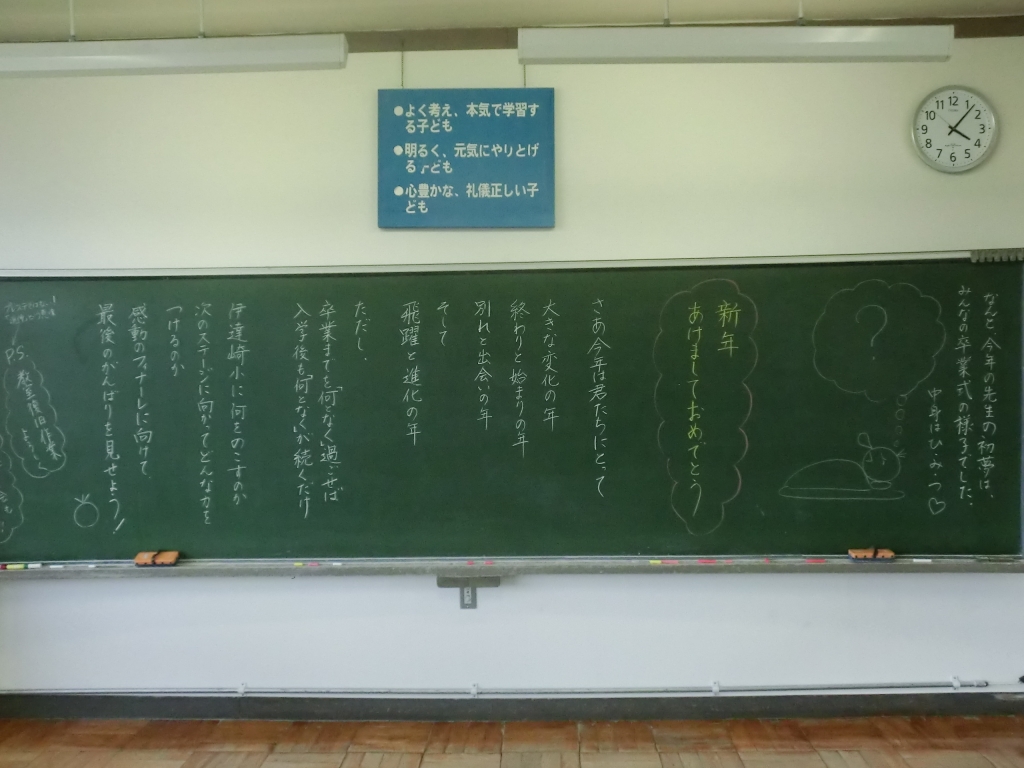 ●よく考え、本気で学習す
る子ども
●明るく、元気にやりとげ
る子ども
●心豊かな、礼儀正しい子
ども
12
1
2
3
4
5
6
7
8
9
10
11
なんと、今年の先生の初夢は、
みんなの卒業式の様子でした。
中身はひみつ♡
?
新年
あけましておめでとう
さあ今年は君たちにとって
大きな変化の年
終わりと始まりの年
別れと出会いの年
そして
飛躍と進化の年
ただし、
卒業までを「何となく」過ごせば
入学後も「何となく」が続くだけ
伊達崎小に何をのこすのか
次のステージに向かってどんな力を
つけるのか
感動のフィナーレに向けて、
最後のがんばりを見せよう!
P.S.
教室復旧作業